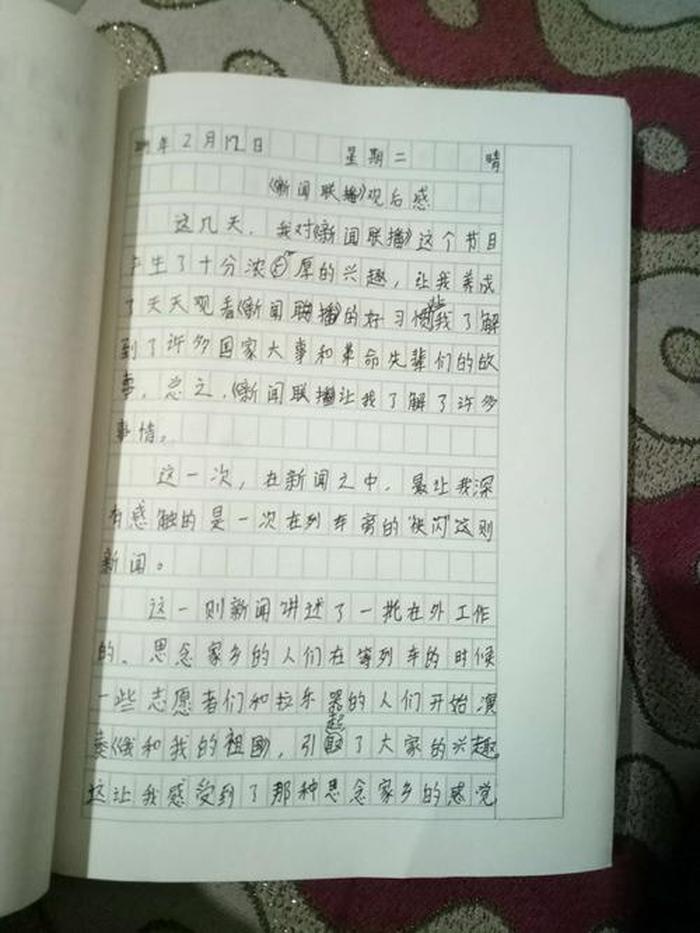 年2月12日 星期二 晴
《新闻联播》观后感
这几天，我对《新闻联播》这个节目
产生了十分浓厚的兴趣，让我养成
了天天观看《新闻联播》的好习惯我了解
到了许多国家大事和革命先辈们的故
事，总之，《新闻联播》让我了解了许多
事情。
这一次，在新闻之中，最让我深
有感触的是一次在列车旁的“快闪”这则
新闻。
这一则新闻讲述了一批在外工作
的、思念家乡的人们在等列车的时候
一些志愿者们和拉乐器的人们开始演
奏《我和我的祖国》，引起了大家的兴趣
这让我感受到了那种思念家乡的感觉